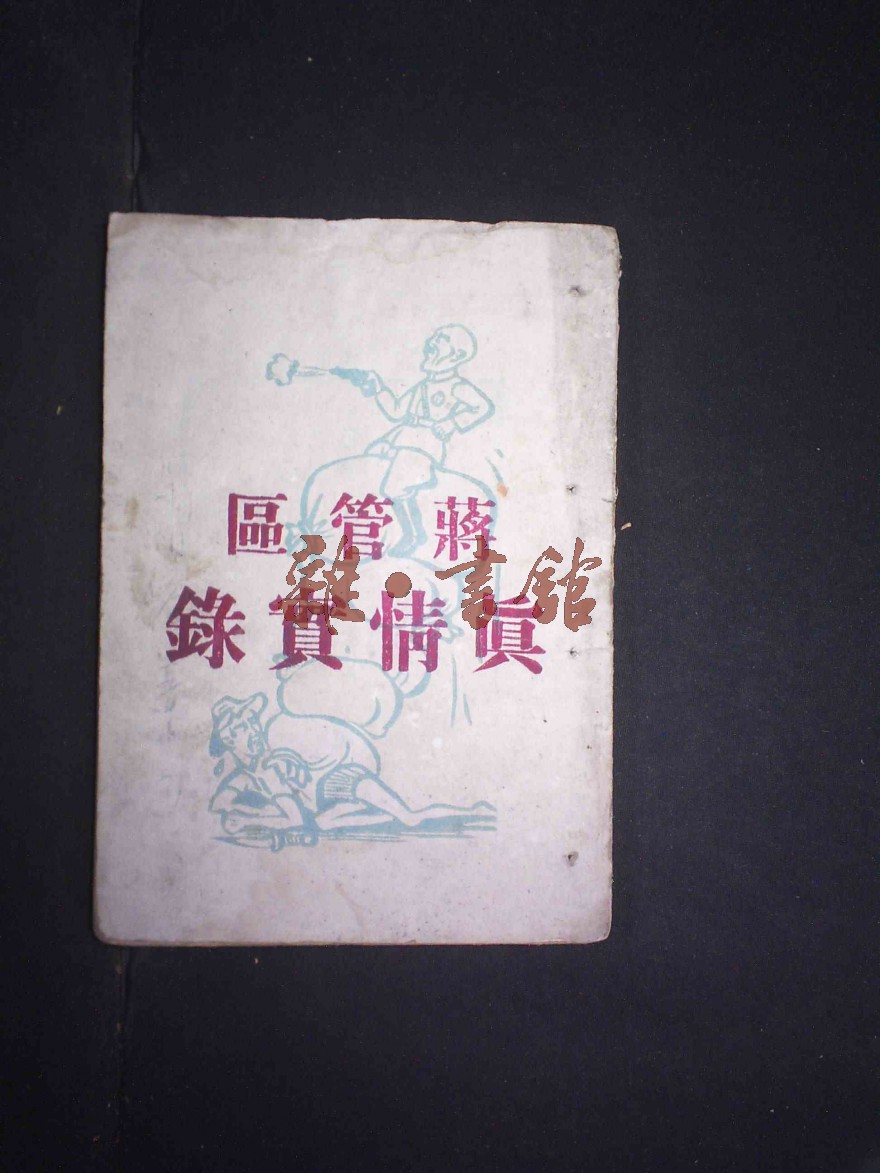 蔣管區
眞情實錄
雜·書館